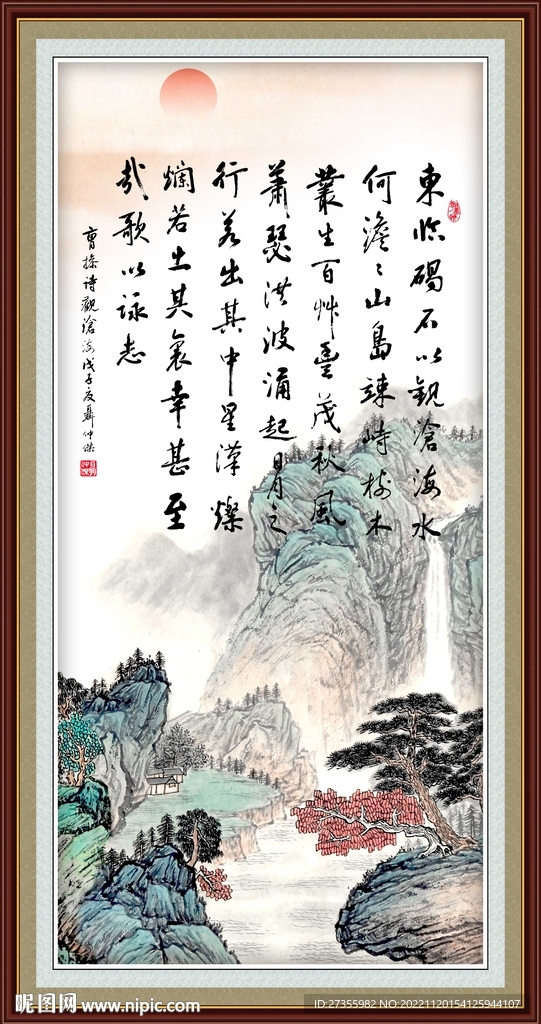 東临碣石以觀滄海水
何澹〻山島竦峙樹木
叢生百艸豐茂秋風
蕭瑟洪波涌起日月之
行若出其中星漢燦
爛若出其裏幸甚至
哉歌以詠志
曹操诗觀滄海戊子夏聶仲傑
昵图网 www.nipic.com
ID:27355982 NO:20221120154125944107